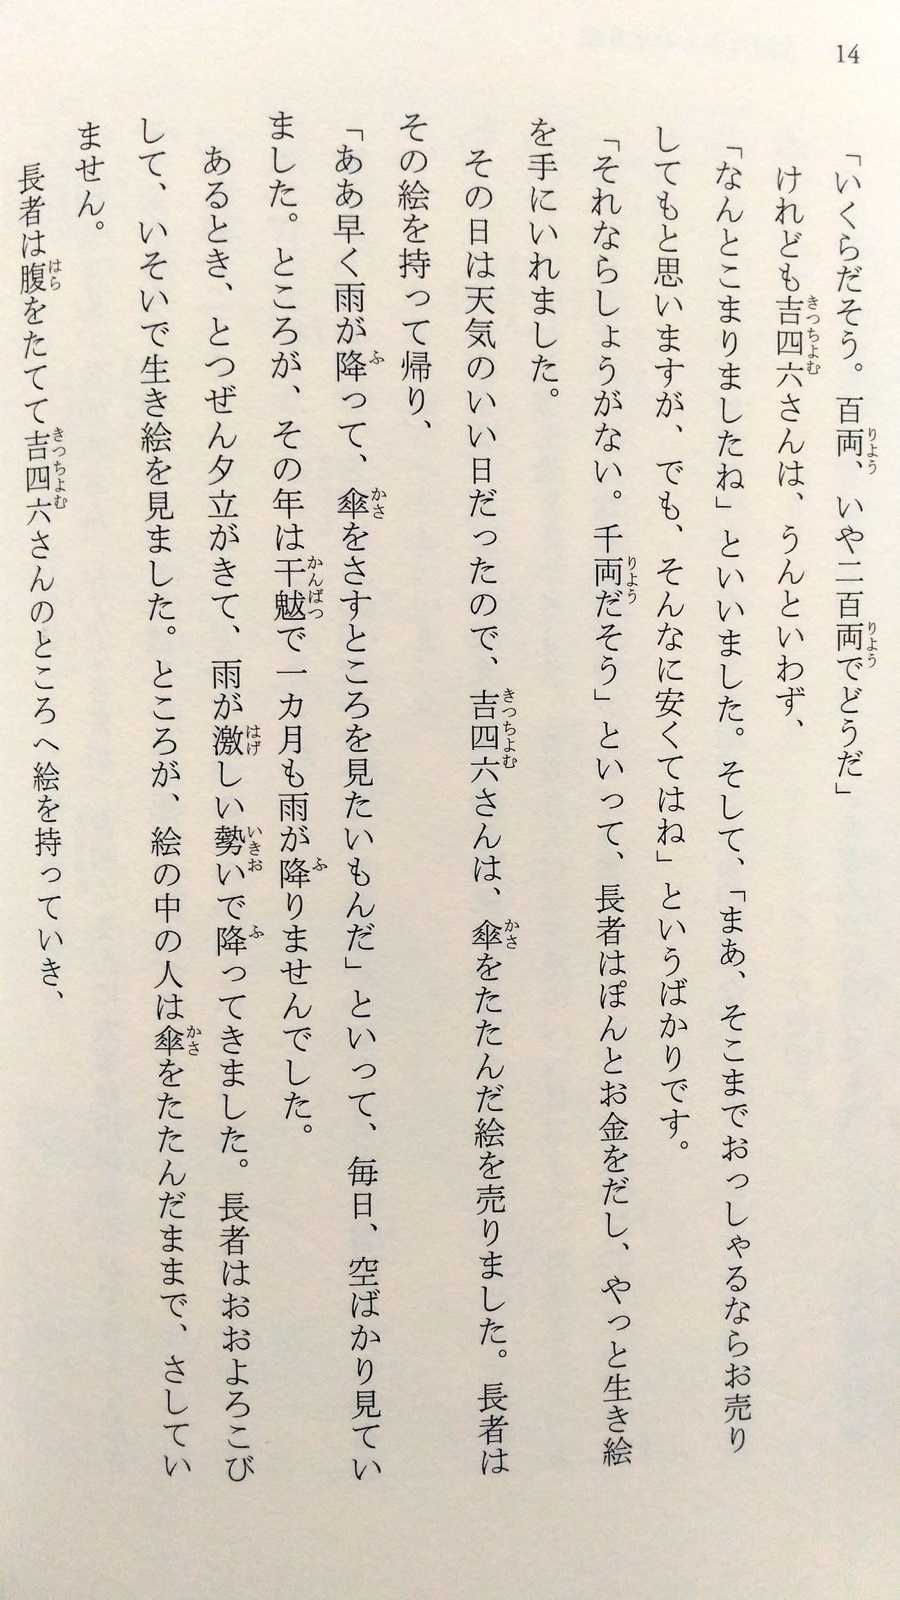 14
「いくらだそう。百両、いや二百両でどうだ」
けれども吉四六さんは、うんといわず、
「なんとこまりましたね」といいました。そして、「まあ、そこまでおっしゃるならお売り
してもと思いますが、でも、そんなに安くてはね」というばかりです。
「それならしょうがない。千両だそう」といって、長者はぽんとお金をだし、やっと生き絵
を手にいれました。
その日は天気のいい日だったので、吉四六さんは、傘をたたんだ絵を売りました。長者は
その絵を持って帰り、
「ああ早く雨が降って、傘をさすところを見たいもんだ」といって、毎日、空ばかり見てい
ました。ところが、その年は干魃で一カ月も雨が降りませんでした。
あるとき、とつぜん夕立がきて、雨が激しい勢いで降ってきました。長者はおおよろこび
して、いそいで生き絵を見ました。ところが、絵の中の人は傘をたたんだままで、さしてい
ません。
長者は腹をたてて吉四六さんのところへ絵を持っていき、